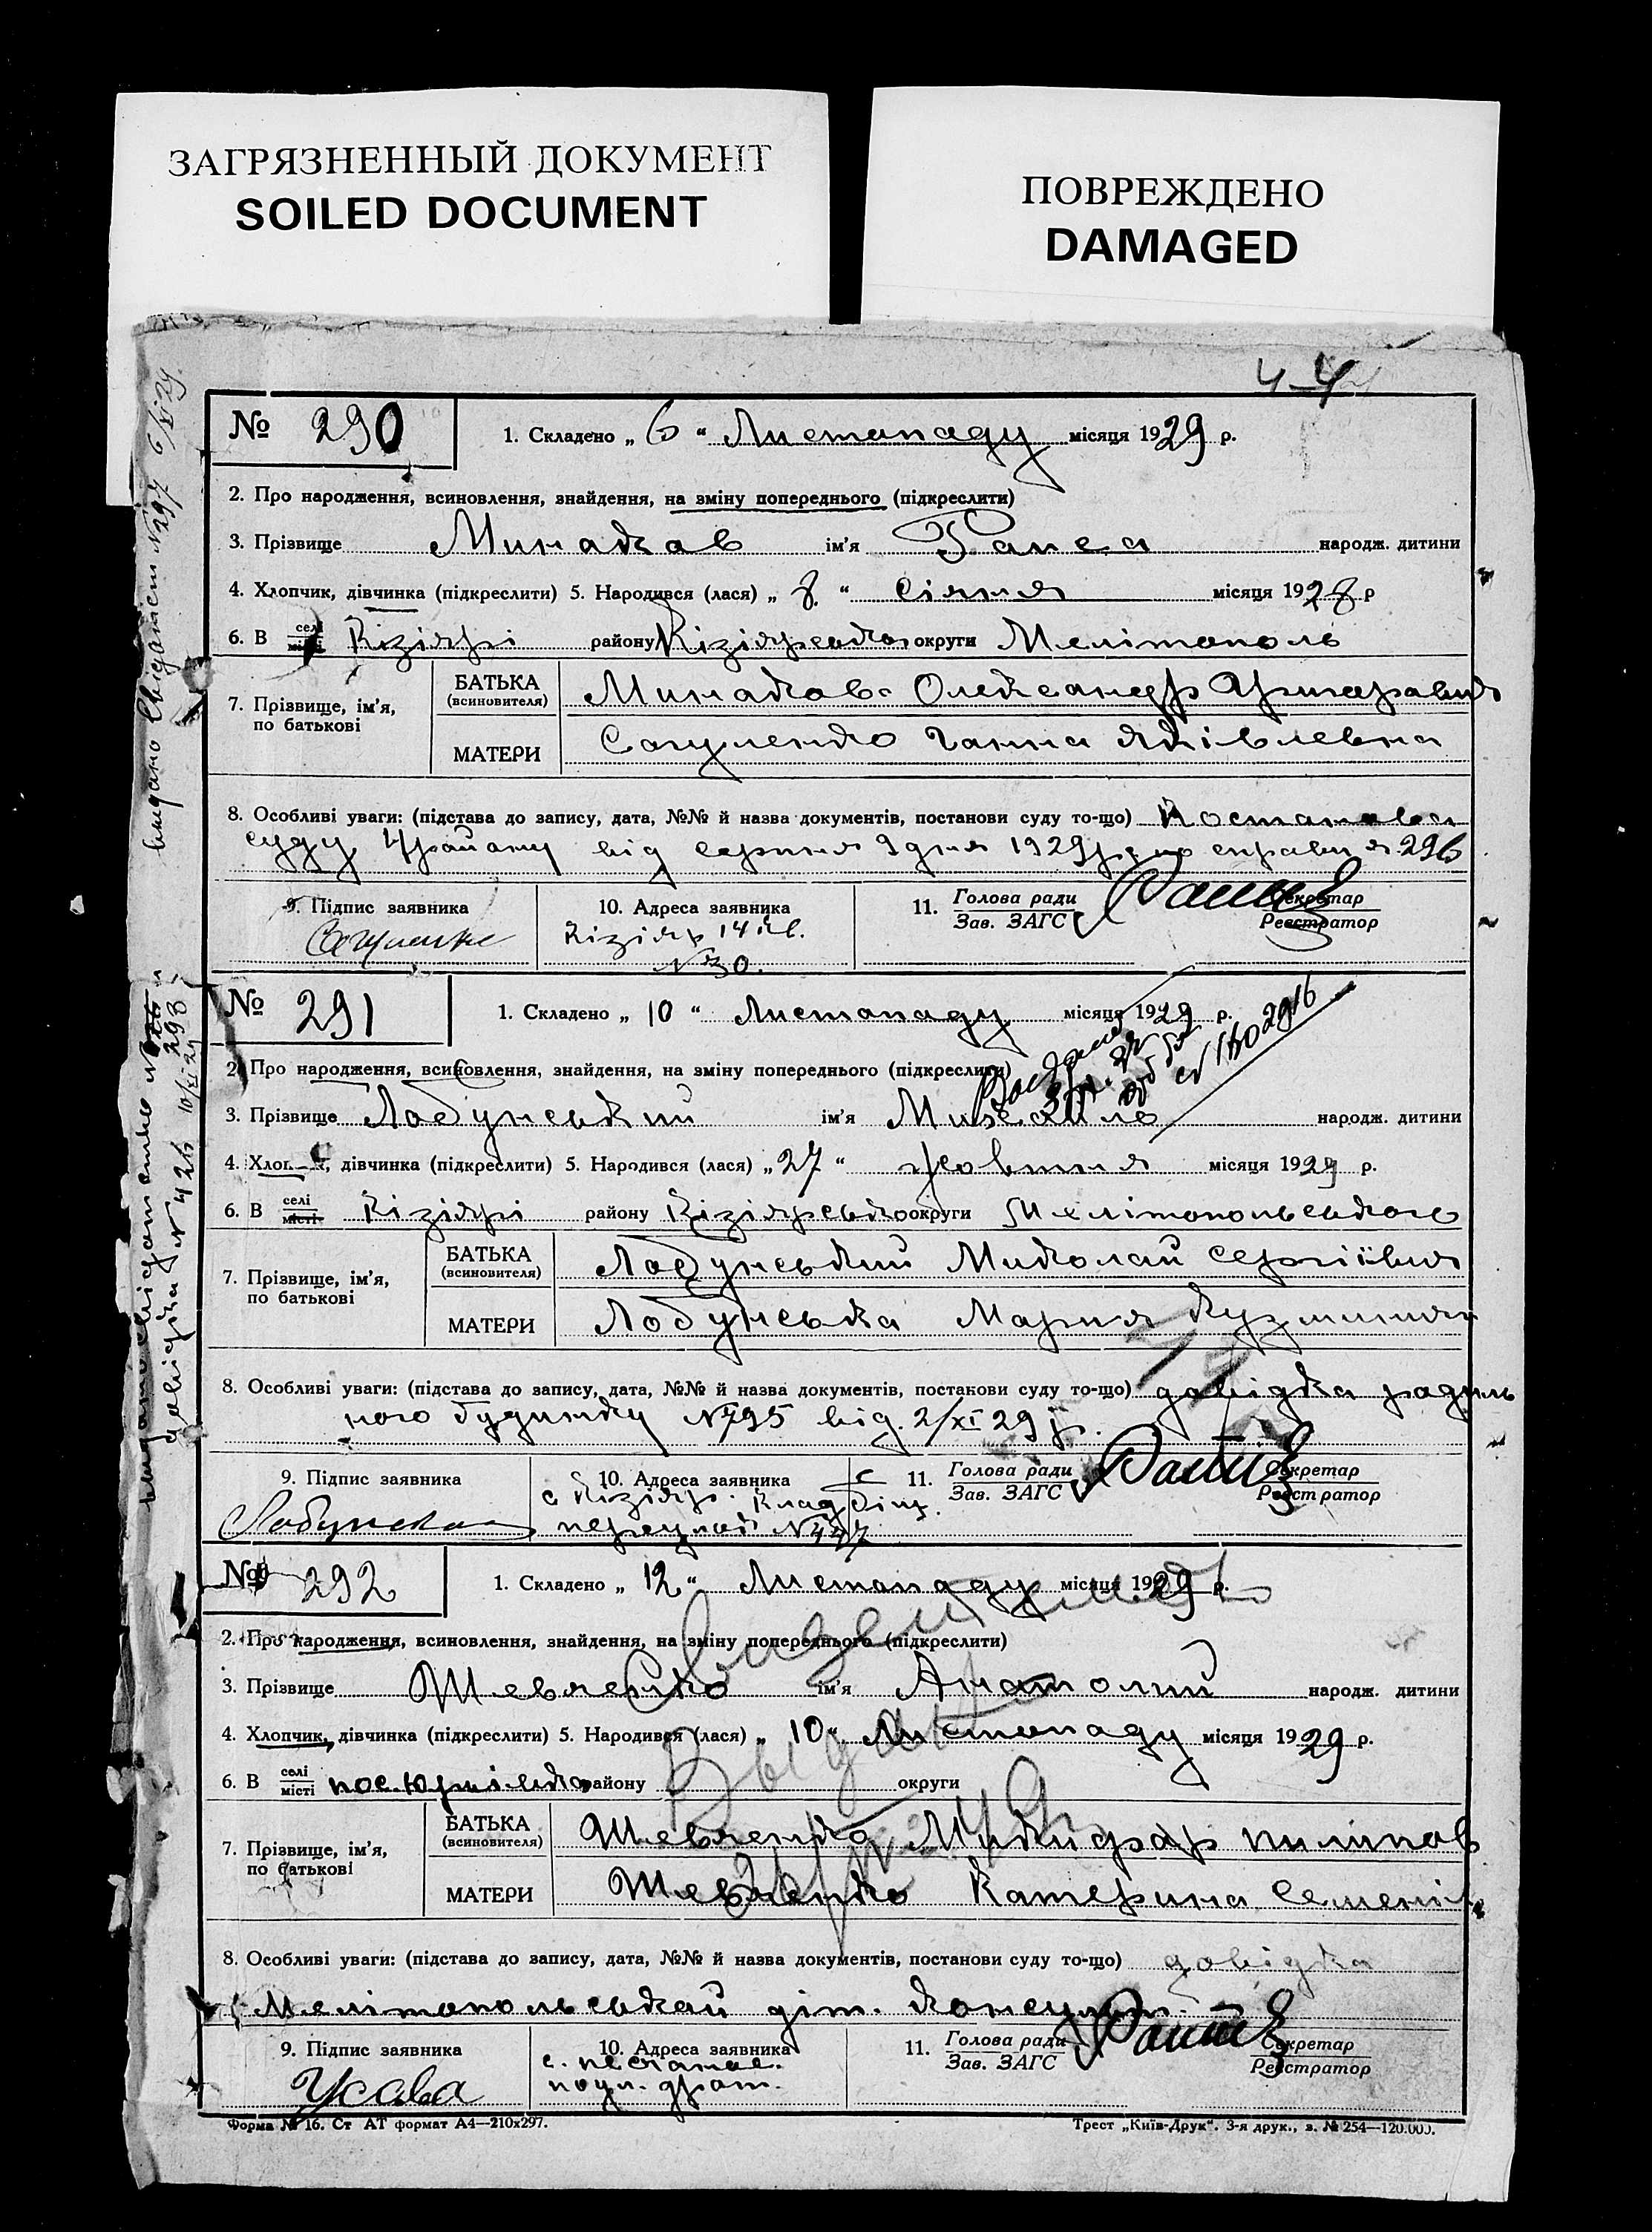 ЗАГРЯЗНЕННЫЙ ДОКУМЕНТ
SOILED DOCUMENT
ПОВРЕЖДЕНО
DAMAGED
№ 290
1. Складено „ 6 “ Листопаду місяця 1929 р.
2. Про народження, всиновлення, знайдення, на зміну попереднього (підкреслити)
3. Прізвище Минаков ім'я Раиса народж. дитини
4. Хлопчик, дівчинка (підкреслити) 5. Народився (лася) „ 8 “ січня місяця 1928 р
6. В селі місті Кізіярі району Кізіярсько округи Мелітополь
7. Прізвище, ім'я, по батькові
БАТЬКА (всиновителя) Минаков Олександр Григоравич
МАТЕРИ Сагуленко Ганна Яківлевна
8. Особливі уваги: (підстава до запису, дата, №№ й назва документів, постанови суду то-що) Постанова
суду 4 району від серпня 9 дня 1929 р. по справи № 296
9. Підпис заявника
10. Адреса заявника
Кізіяр 14 кв.
№ 30.
11. Голова ради Зав. ЗАГС
Секретар Реєстратор
видано свідотст №297 6/XI 29
№ 291
1. Складено „ 10 “ Листопаду місяця 1929 р.
2. Про народження, всиновлення, знайдення, на зміну попереднього (підкреслити)
3. Прізвище Лобунський ім'я Михайло народж. дитини
4. Хлопчик, дівчинка (підкреслити) 5. Народився (лася) „ 27 “ жовтня місяця 1929 р.
6. В селі місті Кізіярі району Кізіярсько округи Мелітопольського
7. Прізвище, ім'я, по батькові
БАТЬКА (всиновителя) Лобунський Миколай Сергіївич
МАТЕРИ Лобунська Мария Кузминична
8. Особливі уваги: (підстава до запису, дата, №№ й назва документів, постанови суду то-що) довідка родиль
ного будинку № 795 від. 2/XI 29 р.
9. Підпис заявника
Лобунская
10. Адреса заявника
с Кізіяр. Кладбіщ.
переулок № 447
11. Голова ради Зав. ЗАГС
Секретар Реєстратор
довідка № 426 10/XI 29
№ 292
1. Складено „ 12 “ Листопаду місяця 1929 р.
2. Про народження, всиновлення, знайдення, на зміну попереднього (підкреслити)
3. Прізвище Шевченко ім'я Анатолий народж. дитини
4. Хлопчик, дівчинка (підкреслити) 5. Народився (лася) „ 10 “ Листопаду місяця 1929 р.
6. В селі місті району округи
7. Прізвище, ім'я, по батькові
БАТЬКА (всиновителя) Шевченко Микифар Пилипов
МАТЕРИ Шевченко Катерина Семенів
8. Особливі уваги: (підстава до запису, дата, №№ й назва документів, постанови суду то-що) довідка
Мелітопольськай діт. консульт.
9. Підпис заявника
Усова
10. Адреса заявника
11. Голова ради Зав. ЗАГС
Секретар Реєстратор
Форма № 16. Ст АТ формат А4—210х297.
Трест „Київ-Друк“. 3-я друк., з. № 254—120.000.